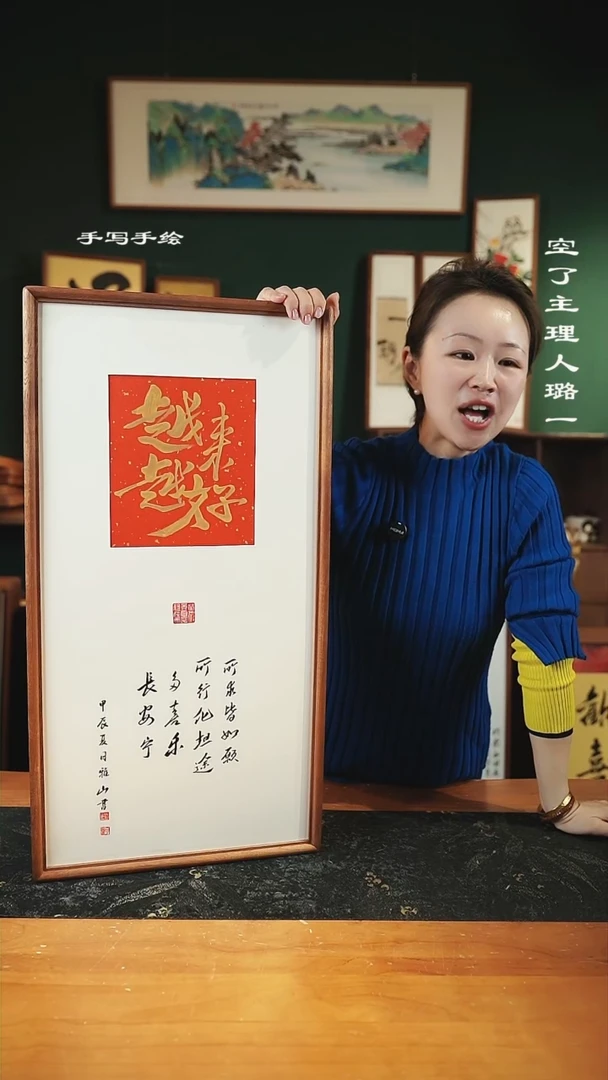 手写手绘
空了主理人璐一
越来
越好
所求皆如愿
所行化坦途
多喜乐
長安宁
甲辰夏月雅山書
歡喜